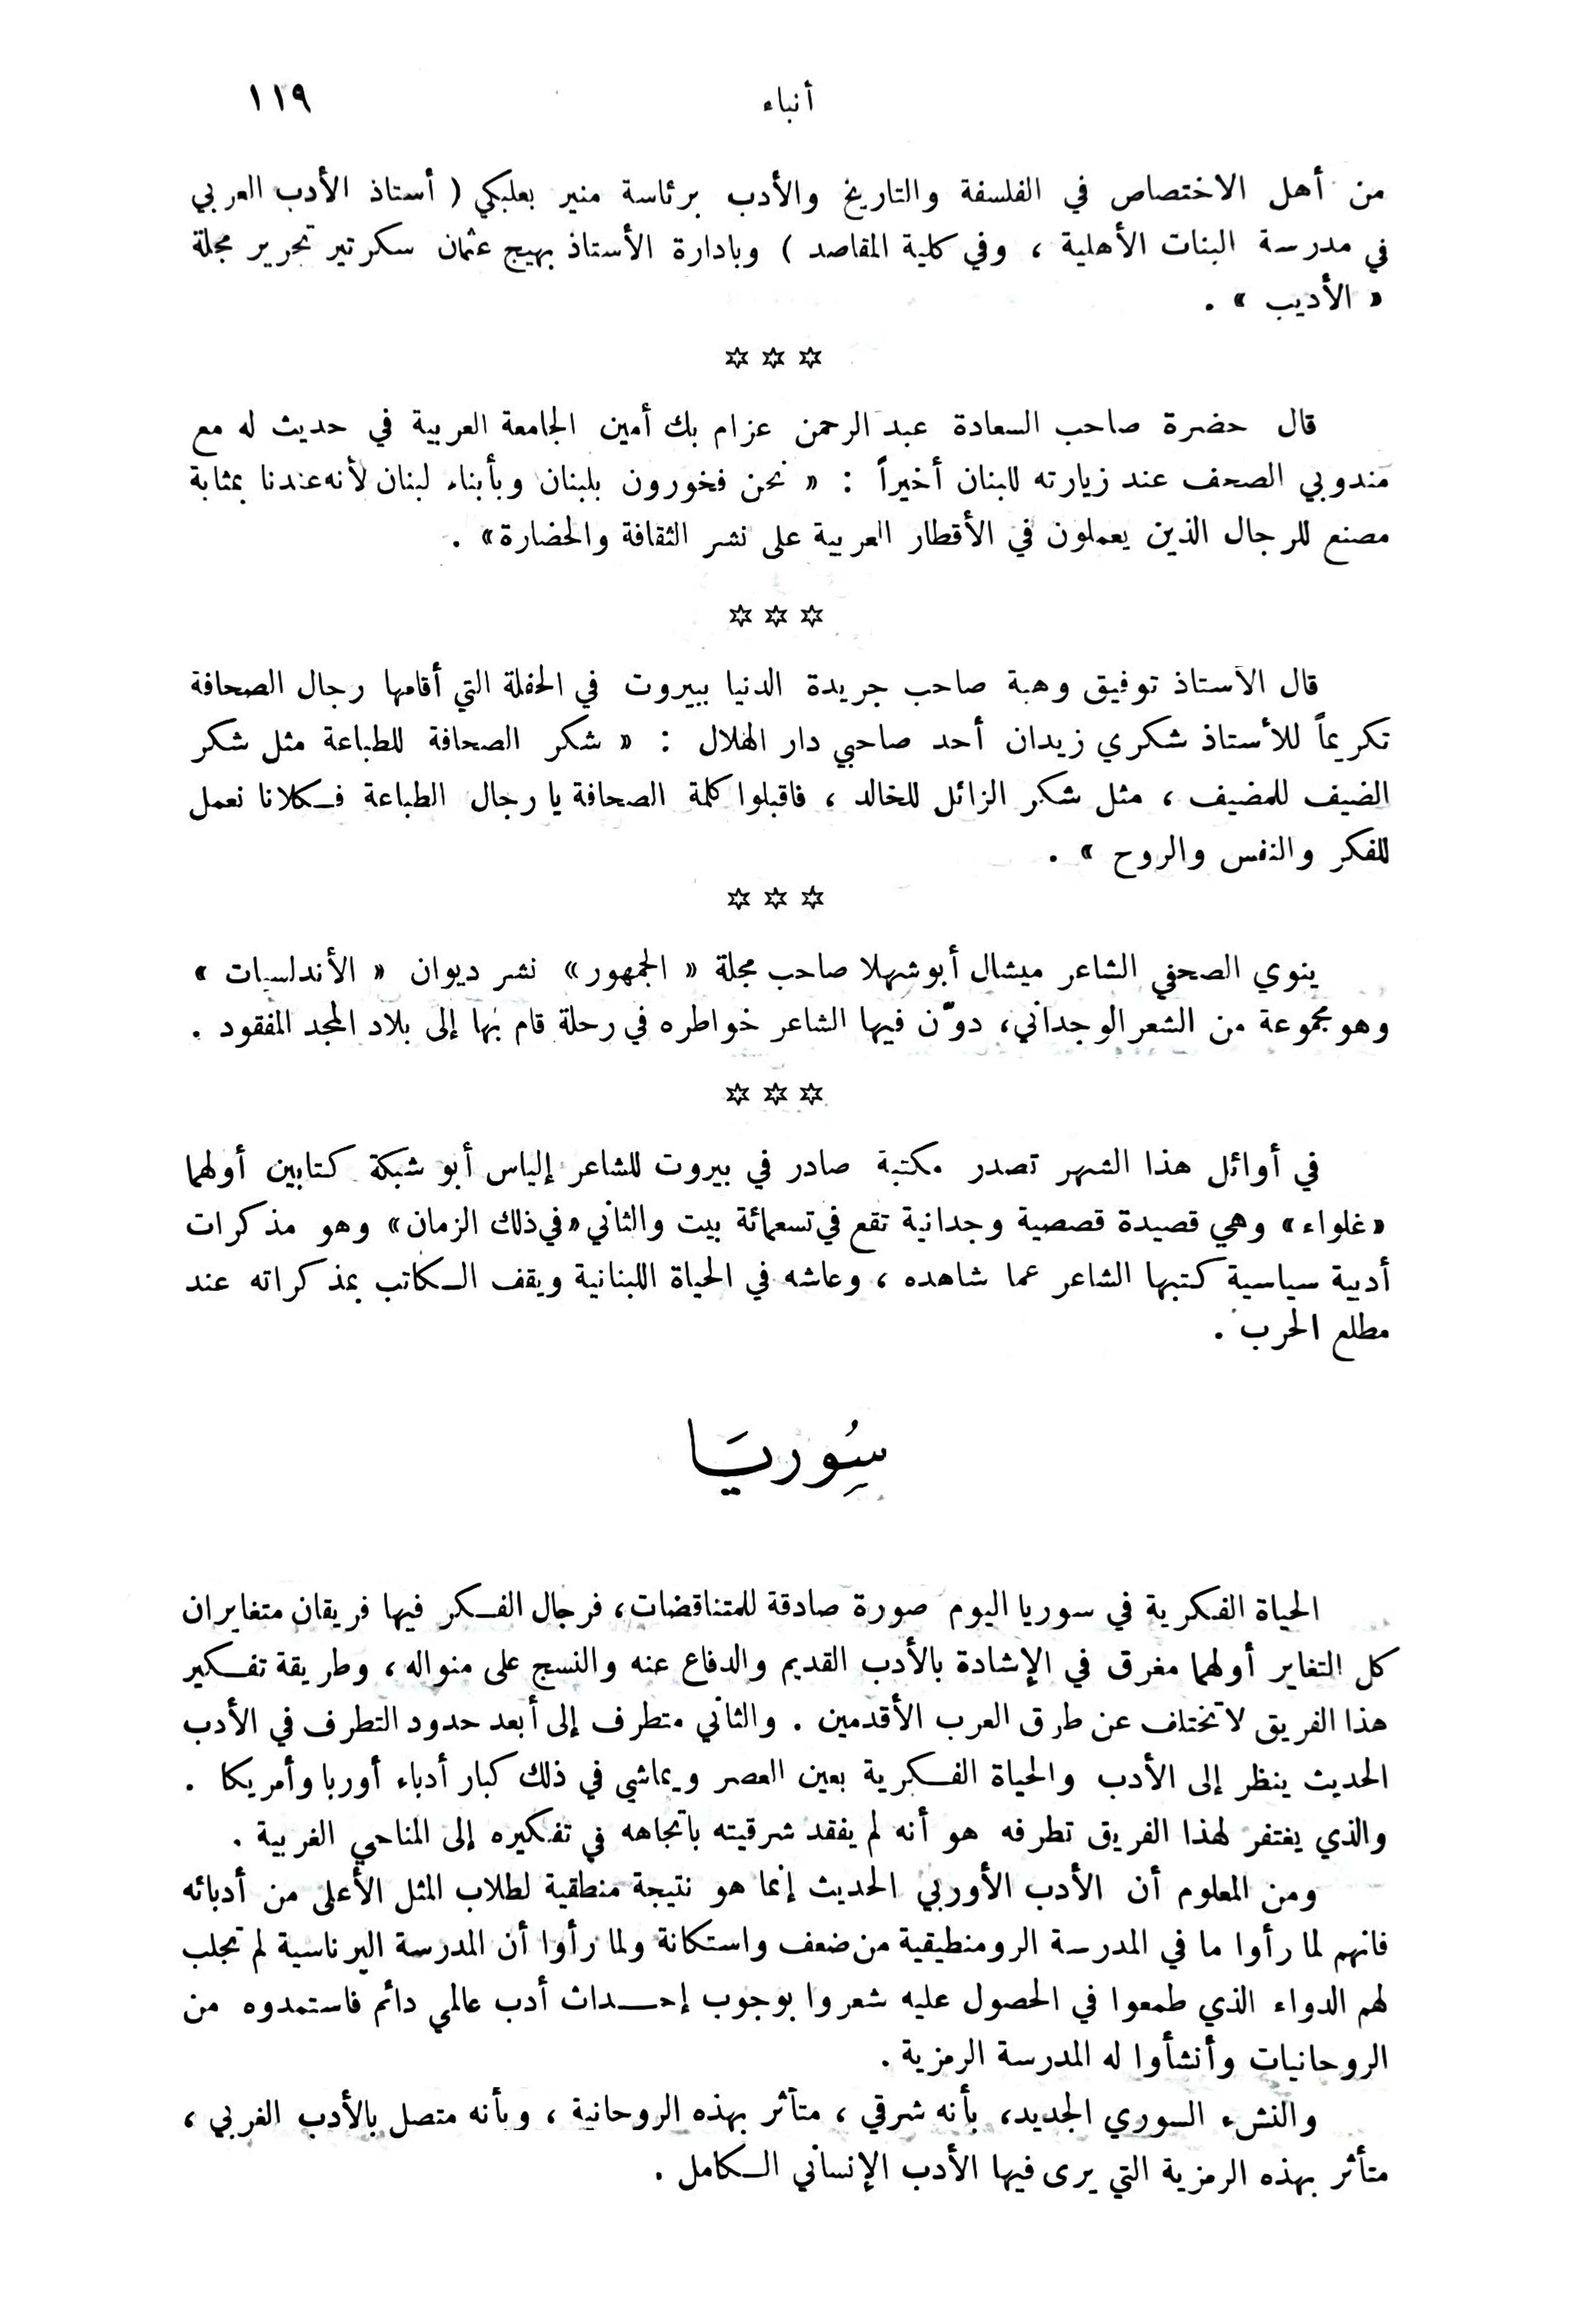 أنباء ١١٩
من أهل الاختصاص في الفلسفة والتاريخ والأدب برئاسة منير بعلبكي ( أستاذ الأدب العربي
في مدرسة البنات الأهلية ، وفي كلية المقاصد ) وبادارة الأستاذ بهيج عثمان سكرتير تحرير مجلة
« الأديب » .
✡ ✡ ✡
قال حضرة صاحب السعادة عبد الرحمن عزام بك أمين الجامعة العربية في حديث له مع
مندوبي الصحف عند زيارته للبنان أخيراً : « نحن فخورون بلبنان وبأبناء لبنان لأنه عندنا بمثابة
مصنع للرجال الذين يعملون في الأقطار العربية على نشر الثقافة والحضارة » .
✡ ✡ ✡
قال الأستاذ توفيق وهبة صاحب جريدة الدنيا ببيروت في الحفلة التي أقامها رجال الصحافة
تكريماً للأستاذ شكري زيدان أحد صاحبي دار الهلال : « شكر الصحافة للطباعة مثل شكر
الضيف للمضيف ، مثل شكر الزائل للخالد ، فاقبلوا كلمة الصحافة يا رجال الطباعة فكلانا نعمل
للفكر والنفس والروح » .
✡ ✡ ✡
ينوي الصحفي الشاعر ميشال أبو شهلا صاحب مجلة « الجمهور » نشر ديوان « الأندلسيات »
وهو مجموعة من الشعر الوجداني، دوّن فيها الشاعر خواطره في رحلة قام بها إلى بلاد المجد المفقود .
✡ ✡ ✡
في أوائل هذا الشهر تصدر مكتبة صادر في بيروت للشاعر إلياس أبو شبكة كتابين أولهما
« غلواء » وهي قصيدة قصصية وجدانية تقع في تسعمائة بيت والثاني « في ذلك الزمان » وهو مذكرات
أدبية سياسية كتبها الشاعر عما شاهده ، وعاشه في الحياة اللبنانية ويقف الكاتب بمذكراته عند
مطلع الحرب .
سُوريَا
الحياة الفكرية في سوريا اليوم صورة صادقة للمتناقضات، فرجال الفكر فيها فريقان متغايران
كل التغاير أولهما مغرق في الإشادة بالأدب القديم والدفاع عنه والنسج على منواله ، وطريقة تفكير
هذا الفريق لا تختلف عن طرق العرب الأقدمين . والثاني متطرف إلى أبعد حدود التطرف في الأدب
الحديث ينظر إلى الأدب والحياة الفكرية بعين العصر ويماشي في ذلك كبار أدباء أوربا وأمريكا .
والذي يغتفر لهذا الفريق تطرفه هو أنه لم يفقد شرقيته باتجاهه في تفكيره إلى المناحي الغربية .
ومن المعلوم أن الأدب الأوربي الحديث إنما هو نتيجة منطقية لطلاب المثل الأعلى من أدبائه
فانهم لما رأوا ما في المدرسة الرومنطيقية من ضعف واستكانة ولما رأوا أن المدرسة البرناسية لم تجلب
لهم الدواء الذي طمعوا في الحصول عليه شعروا بوجوب إحداث أدب عالمي دائم فاستمدوه من
الروحانيات وأنشأوا له المدرسة الرمزية .
والنشء السوري الجديد، بأنه شرقي ، متأثر بهذه الروحانية ، وبأنه متصل بالأدب الغربي ،
متأثر بهذه الرمزية التي يرى فيها الأدب الإنساني الكامل .